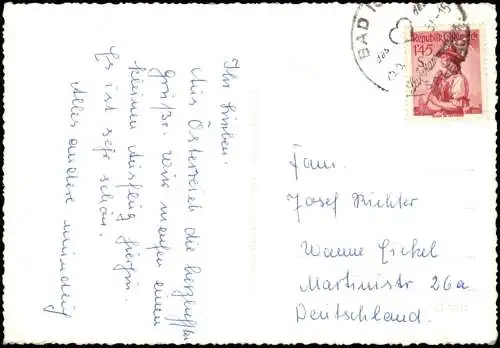 Ihr Lieben.
Aus Österreich die herzlichsten
Grüße. Wir machen einen
kleinen Ausflug hierhin.
Es ist sehr schön.
Alles andere mündlich
BAD
Republik Österreich
1.45
Fam.
Josef Richter
Wanne Eickel
Martinistr 26a
Deutschland.